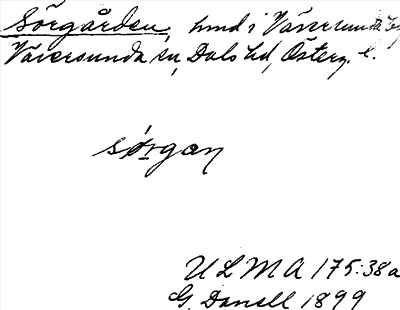 Sörgården, hmd i Väversunda by
Väversunda sn, Dals hd, Österg. l.
sørgan
ULMA 175:38a
G. Danell 1899